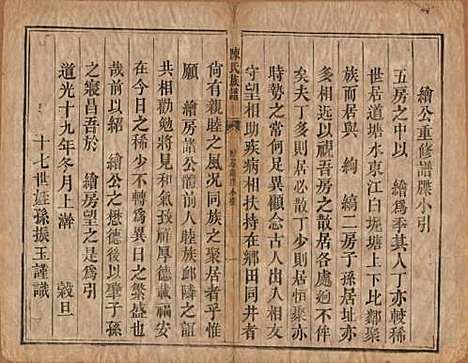 繪公重修譜牒小引
五房之中以 繪爲季其人丁亦較稀
世居道塘水東江白坭塘上下比鄰聚
族而居與 絢 縞二房子孫居址亦
相近遠以視吾房之散居各處迥不侔
矣夫丁多則居必散丁少則居恒聚亦
時勢之常何足異顧念古人出入相友
守望相助疾病相扶持在鄉田同井者
陳氏族譜
尚有親睦之風况同族之聚居者乎惟
願 繪房公前人睦族邱鄰之誼
共相勸勉將見和氣致祥厚德載福安
在今日之稀少不轉爲異日之繁盛也
哉前以紹 繪公之懋德後以鞏子孫
之寢昌吾於 繪房望之是爲引
道光十九年冬月上澣 穀旦
十七世姪孫振玉謹識